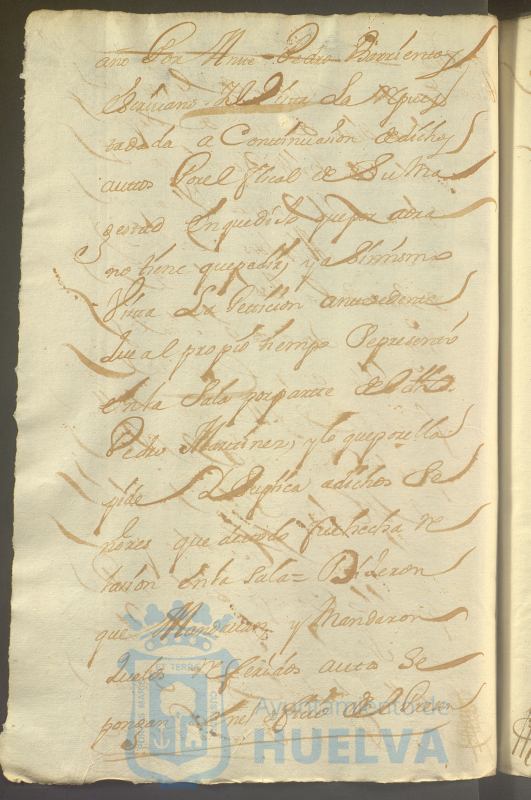 ano Por Ante Pedro Barrientos
Escrivano Y Vista La Respues
tadada a Continuasion dedichos
autos Porel fiscal de Su Ma
gestad Enquedijo quepor aora
no tiene quepedir, y asimismo
Vista La Petision antesedente
Que al propio tiempo Representó
enla Sala porparte del dho
Pedro Martinez, y lo queporella
pide Suplica adichos Se
ñores que detodo fuehecha Re
lasion enla Sala= Dijeron
que Mandavan y Mandaron
quelos Referidos autos Se
pongan enel ofisio de
Ayuntamiento de
HUELVA